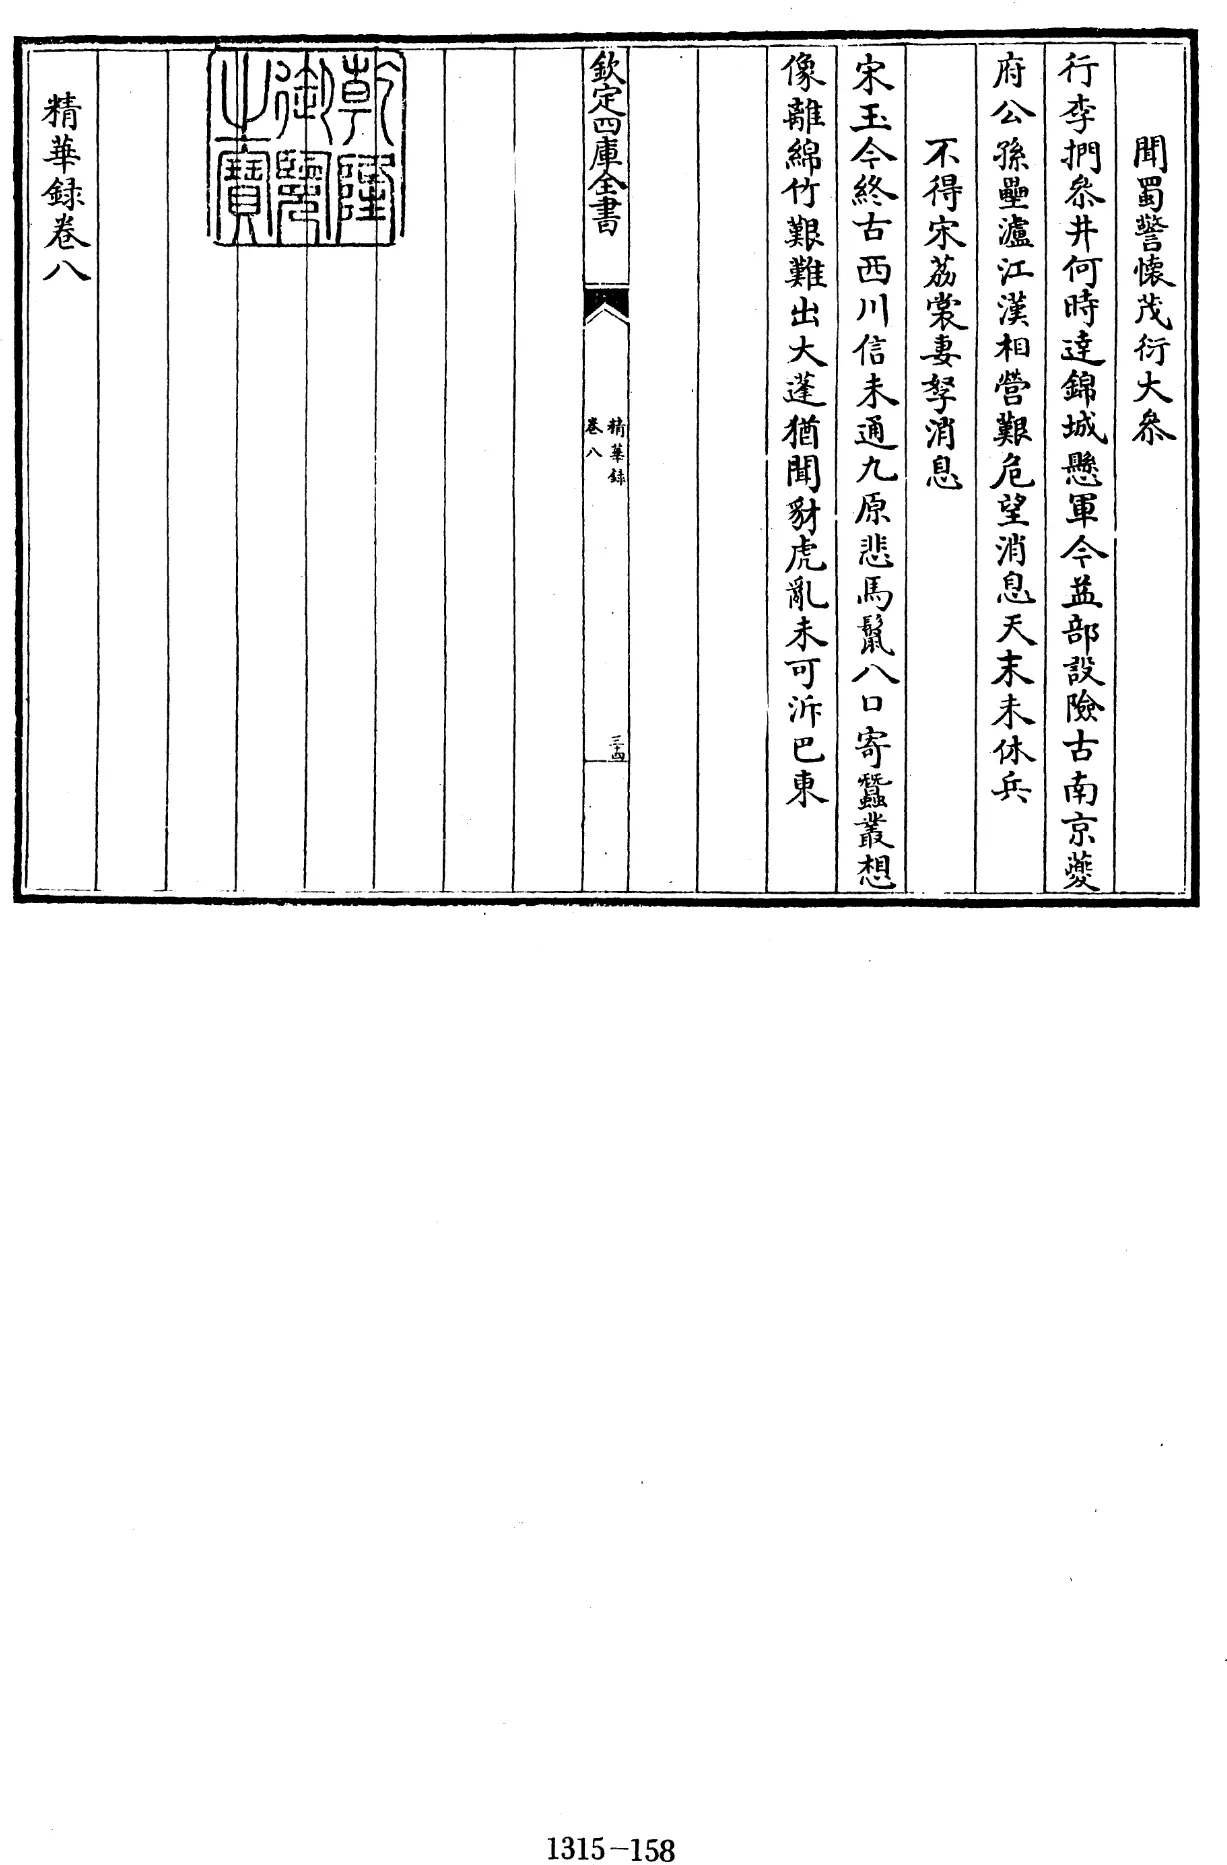 聞蜀警懷茂衍大參
行李捫參井何時達錦城懸軍今益部設險古南京夔
府公孫壘瀘江漢相營艱危望消息天末未休兵
不得宋荔裳妻孥消息
宋玉今終古西川信未通九原悲馬鬣八口寄蠶叢想
像離綿竹艱難出大蓬猶聞豺虎亂未可泝巴東
欽定四庫全書
精華録
卷八
三四
乾隆
御覽
之寶
精華録卷八
1315-158